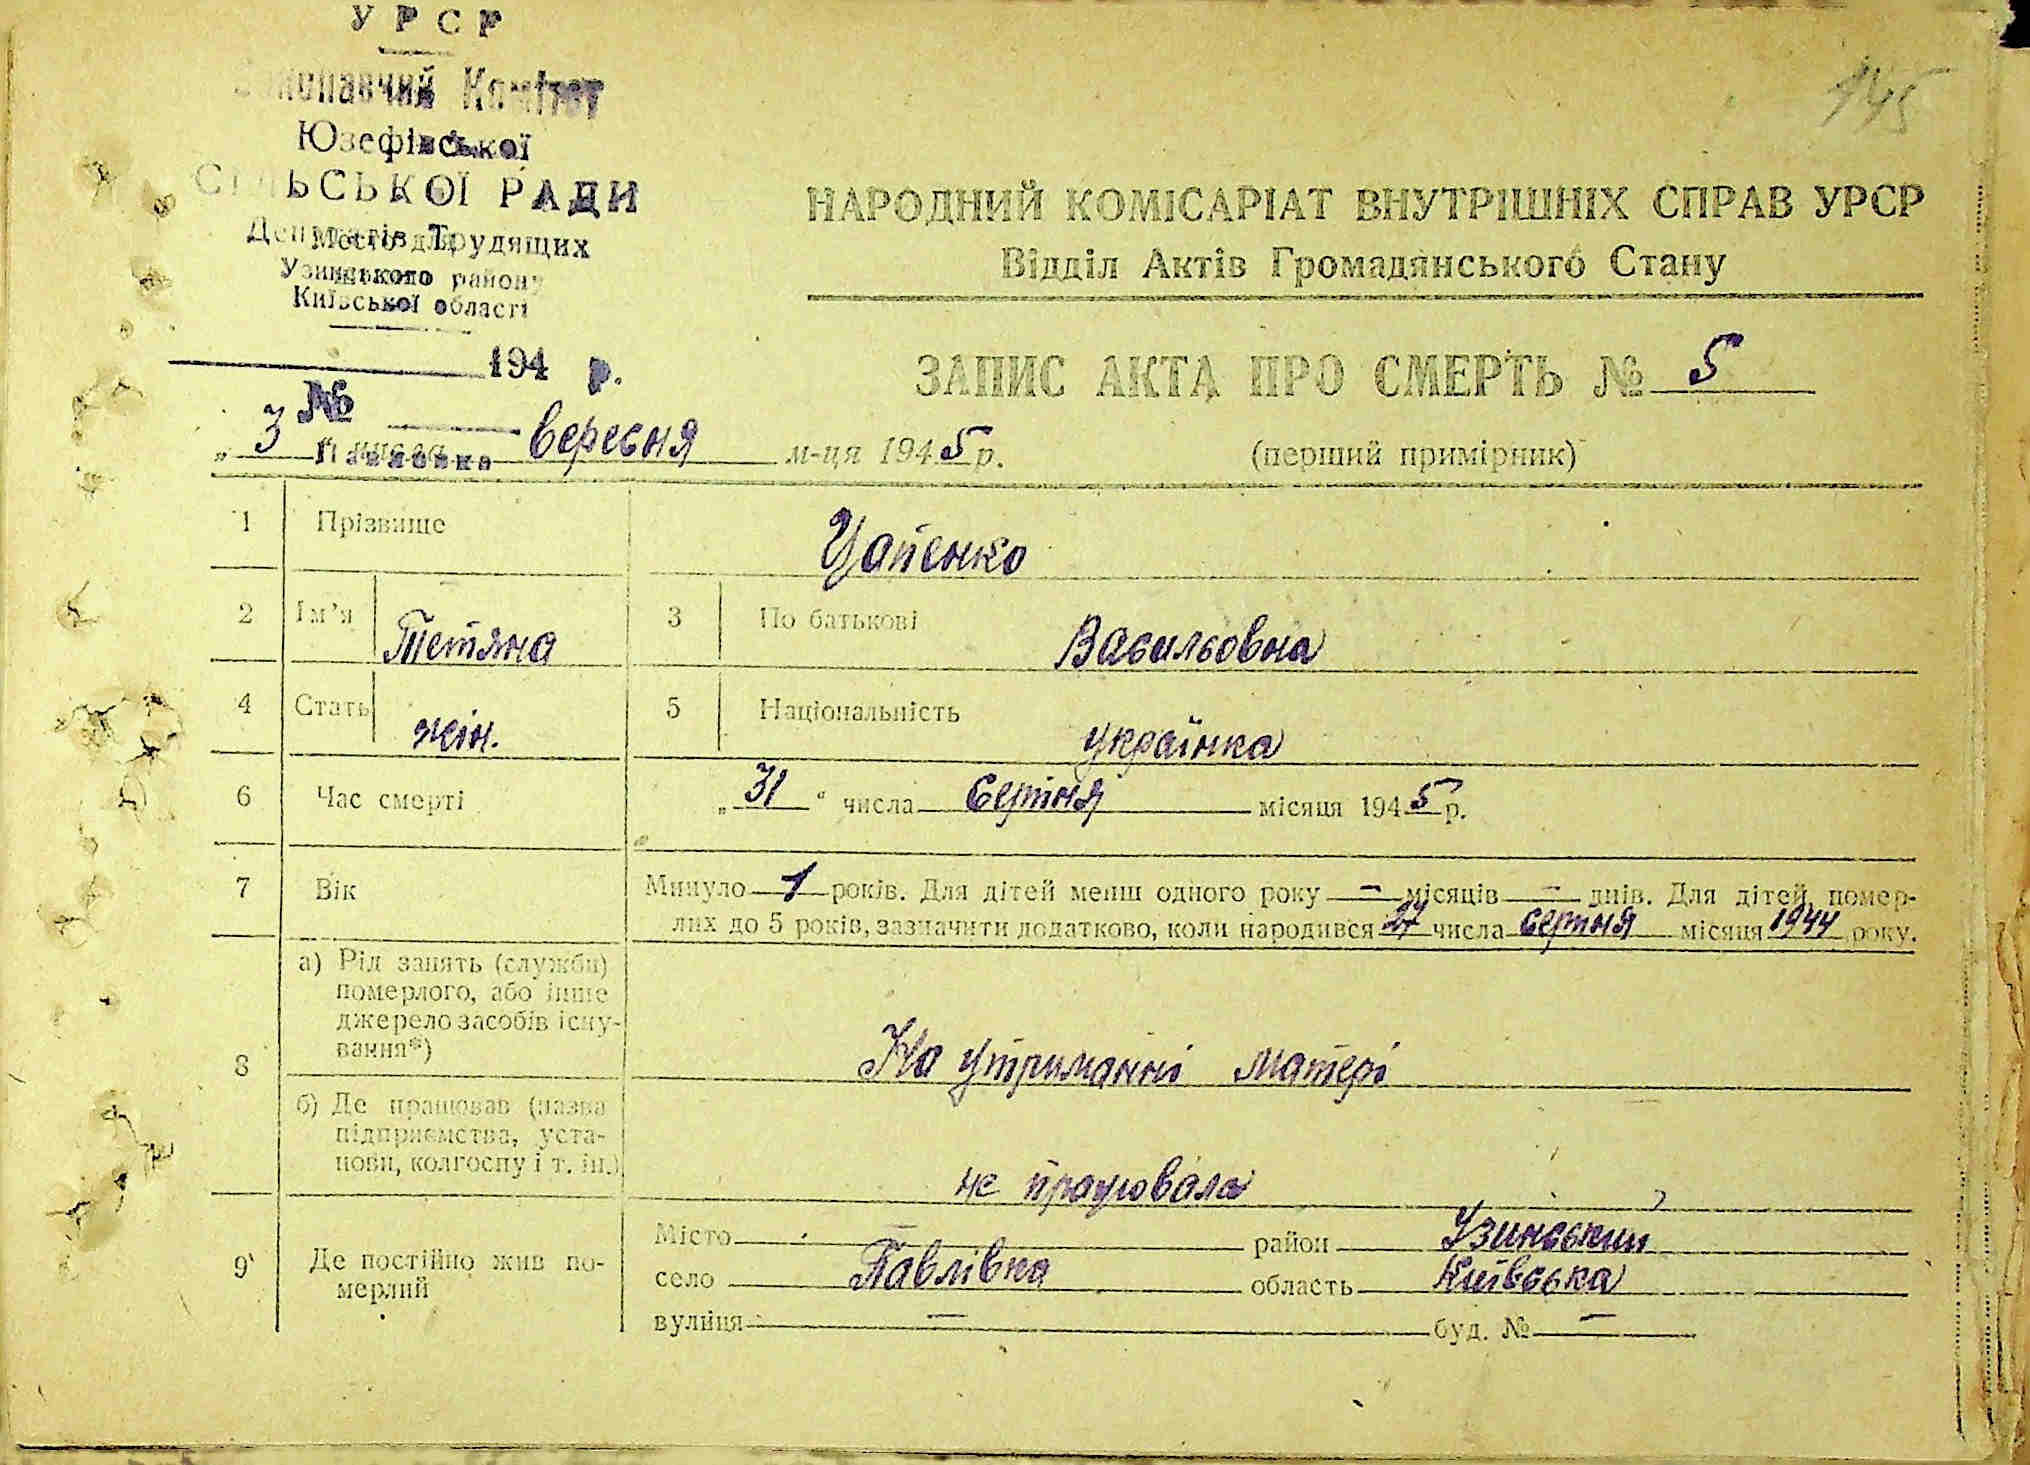 УРСР
Виконавчий Комітет
Юзефівської
СІЛЬСЬКОЇ РАДИ
Депутатів Трудящих
Узинського району
Київської області
194 р.
№
145
НАРОДНИЙ КОМІСАРІАТ ВНУТРІШНІХ СПРАВ УРСР
Відділ Актів Громадянського Стану
ЗАПИС АКТА ПРО СМЕРТЬ № 5
„ 3 вересня м-ця 1945 р. (перший примірник)
1 Прізвище Цапенко
2 Ім'я Тетяна 3 По батькові Васильовна
4 Стать жін. 5 Національність українка
6 Час смерті „ 31 " числа Серпня місяця 1945 р.
7 Вік Минуло 1 років. Для дітей менш одного року — місяців — днів. Для дітей, помер-
лих до 5 років, зазначити додатково, коли народився числа серпня місяця 1944 року.
8 а) Рід занять (служби)
померлого, або інше
джерело засобів існу-
вання*)
На утриманні матері
б) Де працював (назва
підприємства, уста-
нови, колгоспу і т. ін.)
не працювала
9 Де постійно жив по-
мерлий
Місто район Узинський
село Павлівка область Київська
вулиця — буд. № —